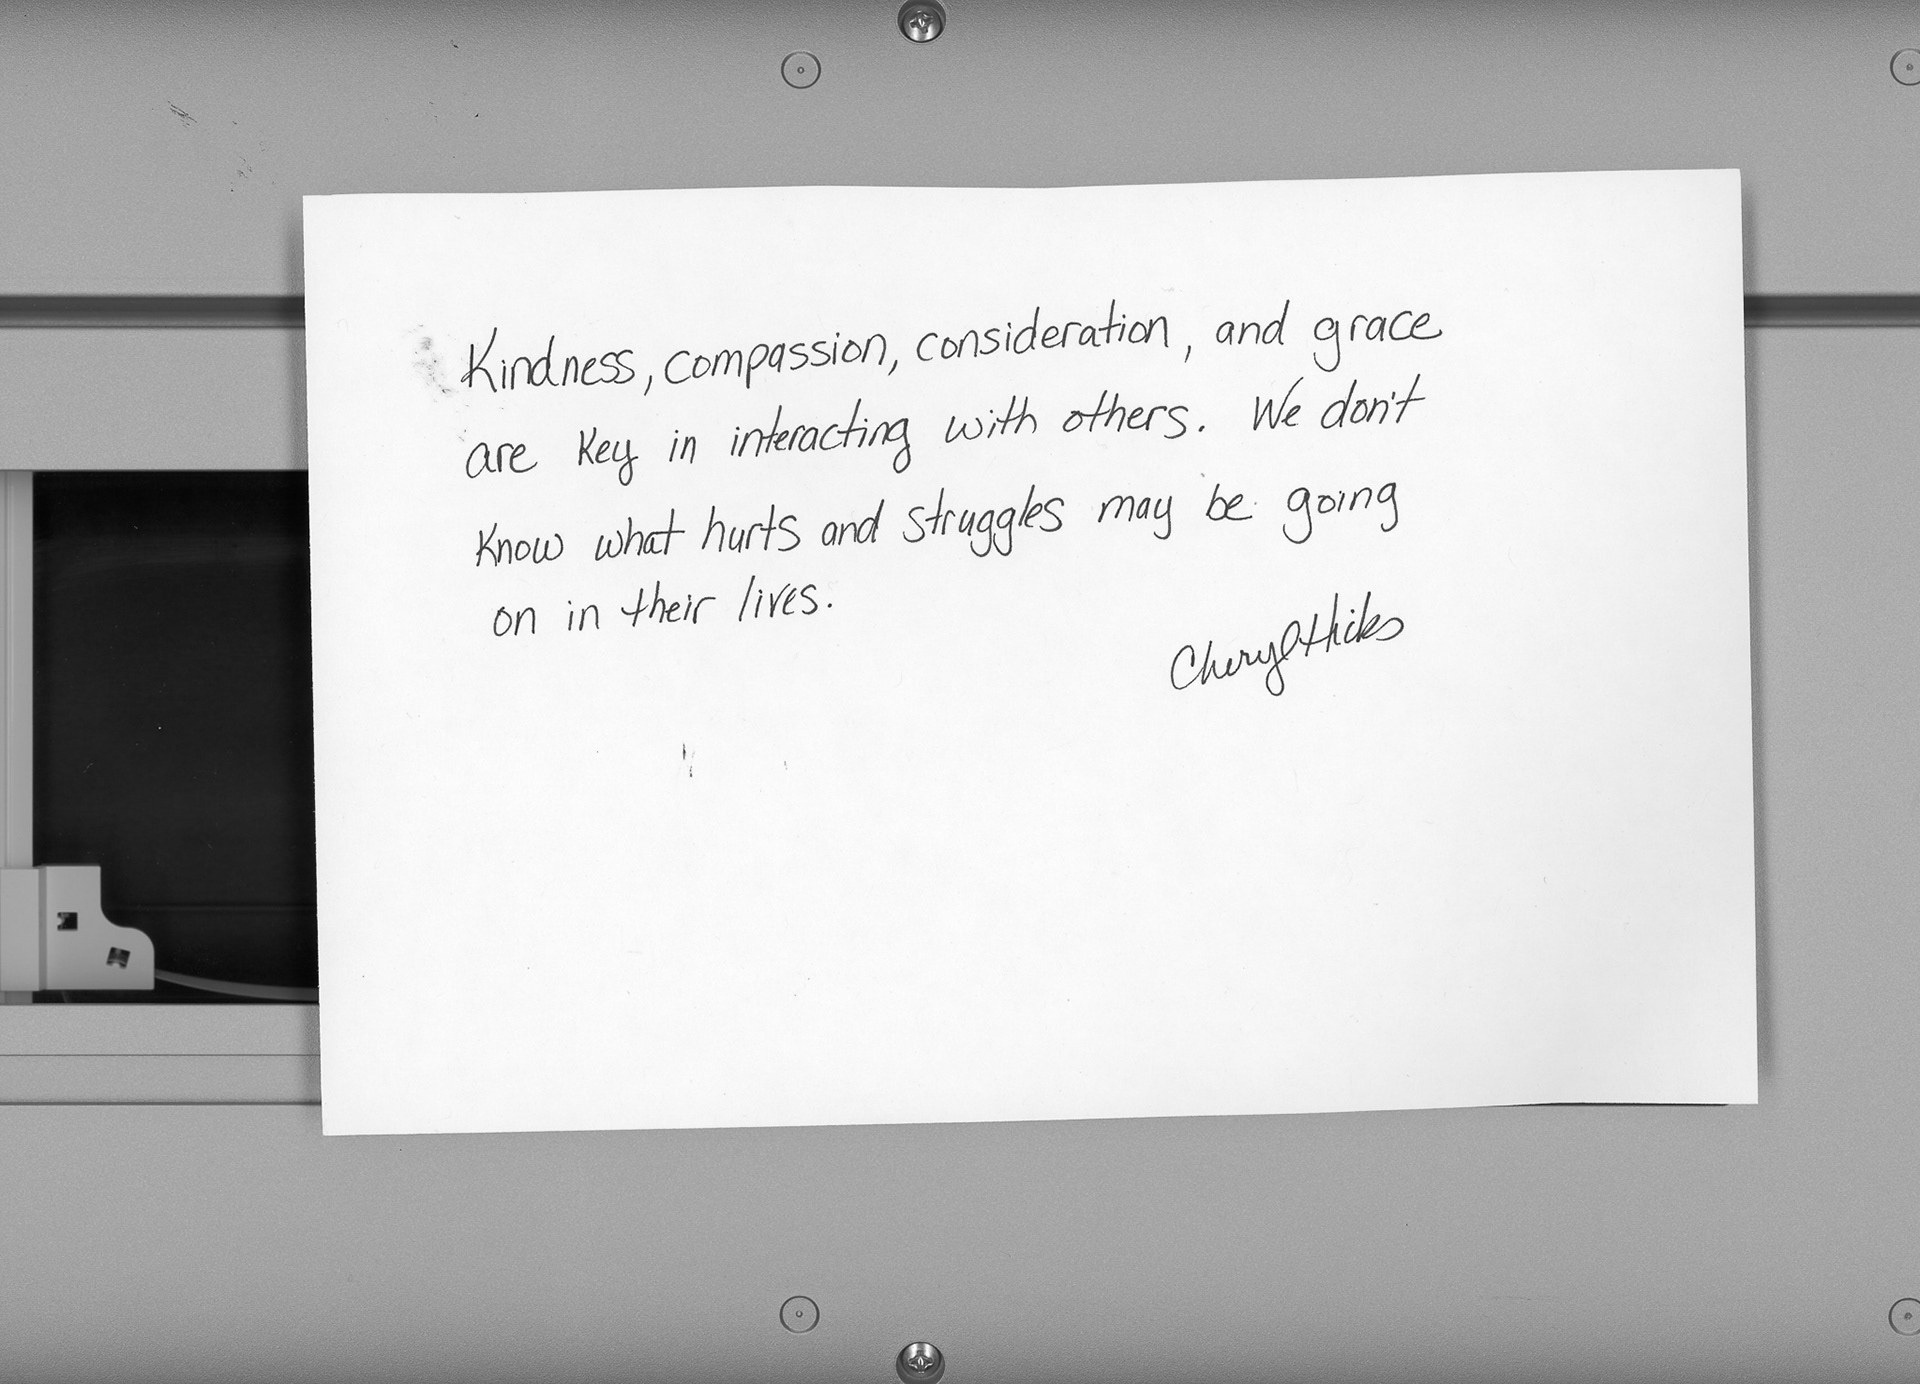 Kindness, compassion, consideration, and grace
are key in interacting with others. We don't
know what hurts and struggles may be going
on in their lives.
Cheryl Hicks